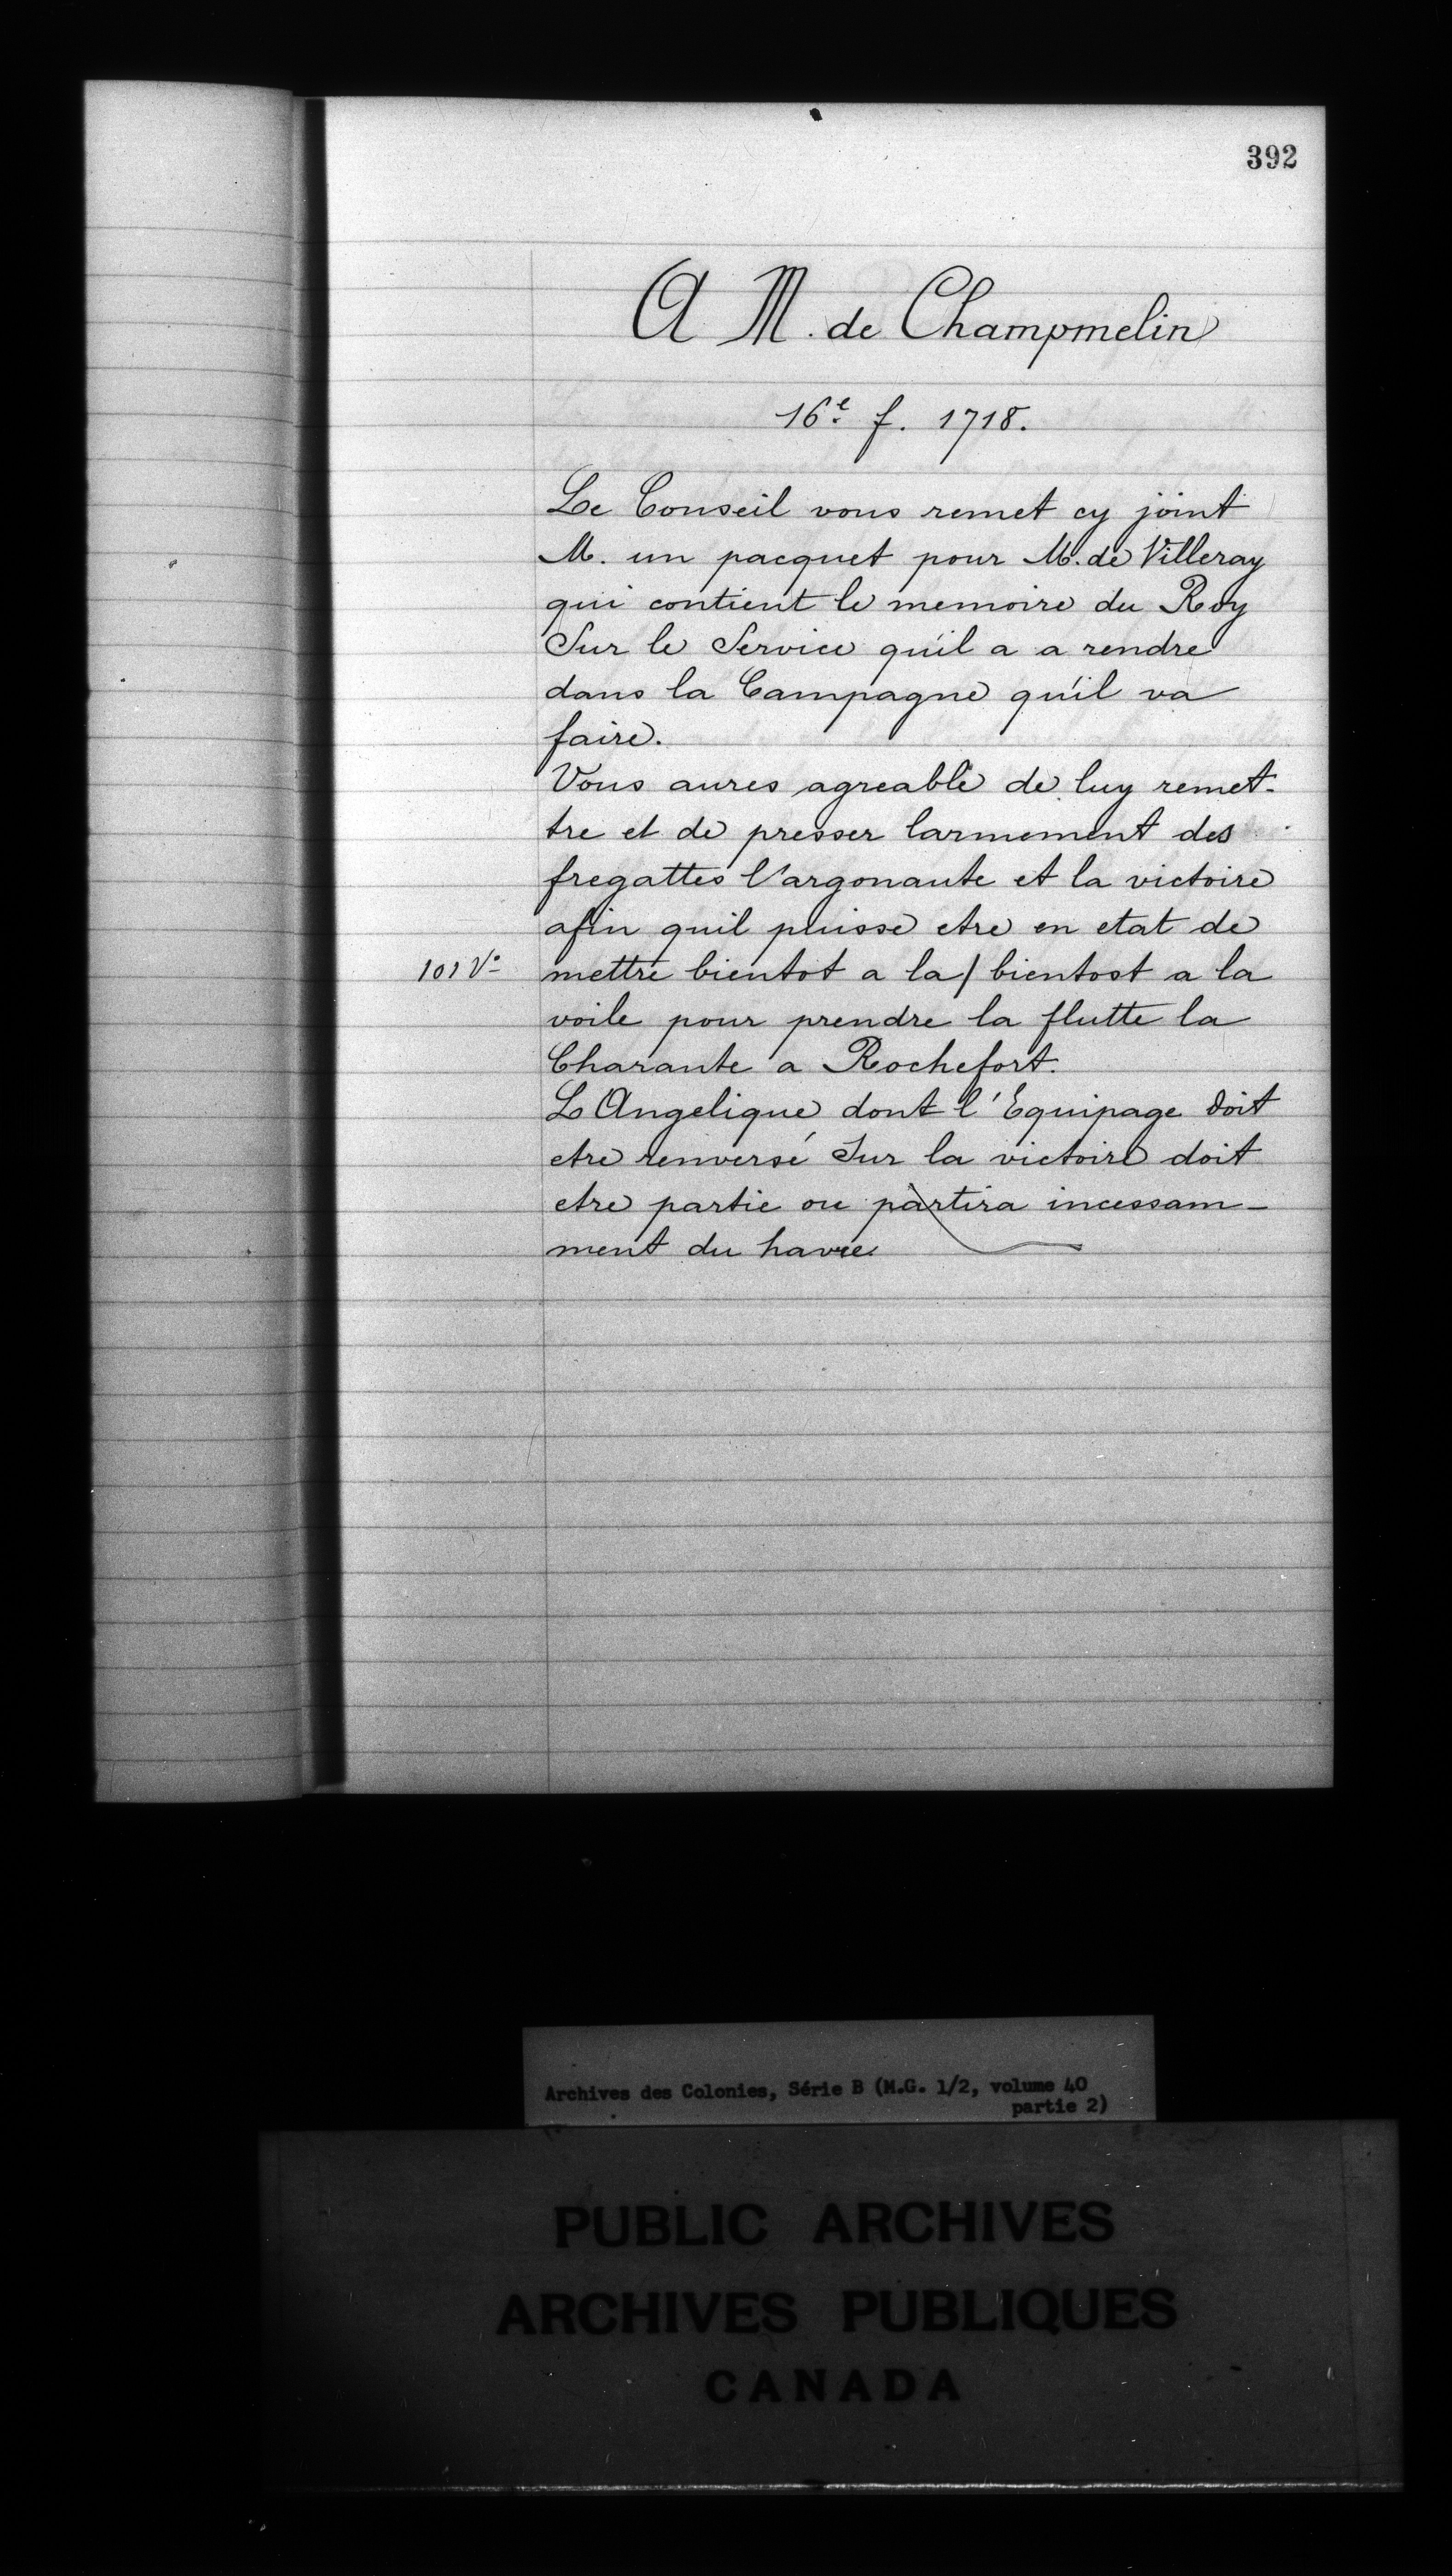 392
A M. de Champmelin
16e f. 1718.
Le Conseil vous remet cy joint
M. un pacquet pour M. de Villeray
qui contient le memoire du Roy
Sur le Service qu'il a a rendre
dans la Campagne qu'il va
faire.
Vous aures agreable de luy remet-
tre et de presser larmement des
fregattes l'argonaute et la victoire
afin quil puisse etre en etat de
101 Vo mettre bientot a la/ bientost a la
voile pour prendre la flutte la
Charante a Rochefort.
L Angelique dont l'Equipage doit
etre renversé Sur la victoire doit
etre partie ou partira incessam-
ment du havre
Archives des Colonies, Série B (M.G. 1/2, volume 40
partie 2)
PUBLIC ARCHIVES
ARCHIVES PUBLIQUES
CANADA